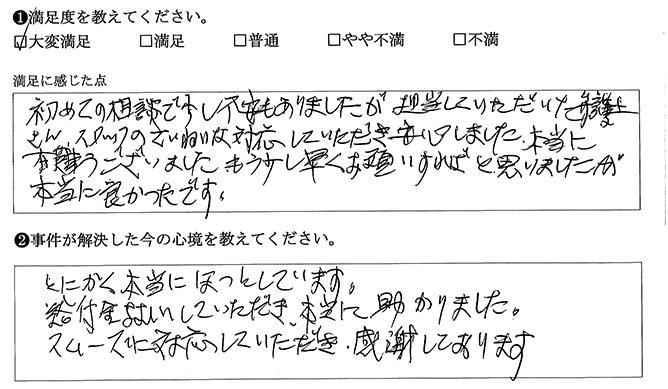 ❶満足度を教えてください。
☑大変満足 □満足 □普通 □やや不満 □不満
満足に感じた点
初めての相談で少し不安もありましたが 担当していただいた弁護士
さん、スタッフのていねいな対応していただき安心しました。本当に
有難うございました。もう少し早くお願いすればと思いましたが
本当に良かったです。
❷事件が解決した今の心境を教えてください。
とにかく本当にほっとしています。
給付金 していただき、本当に助かりました。
スムーズに対応していただき、感謝しております